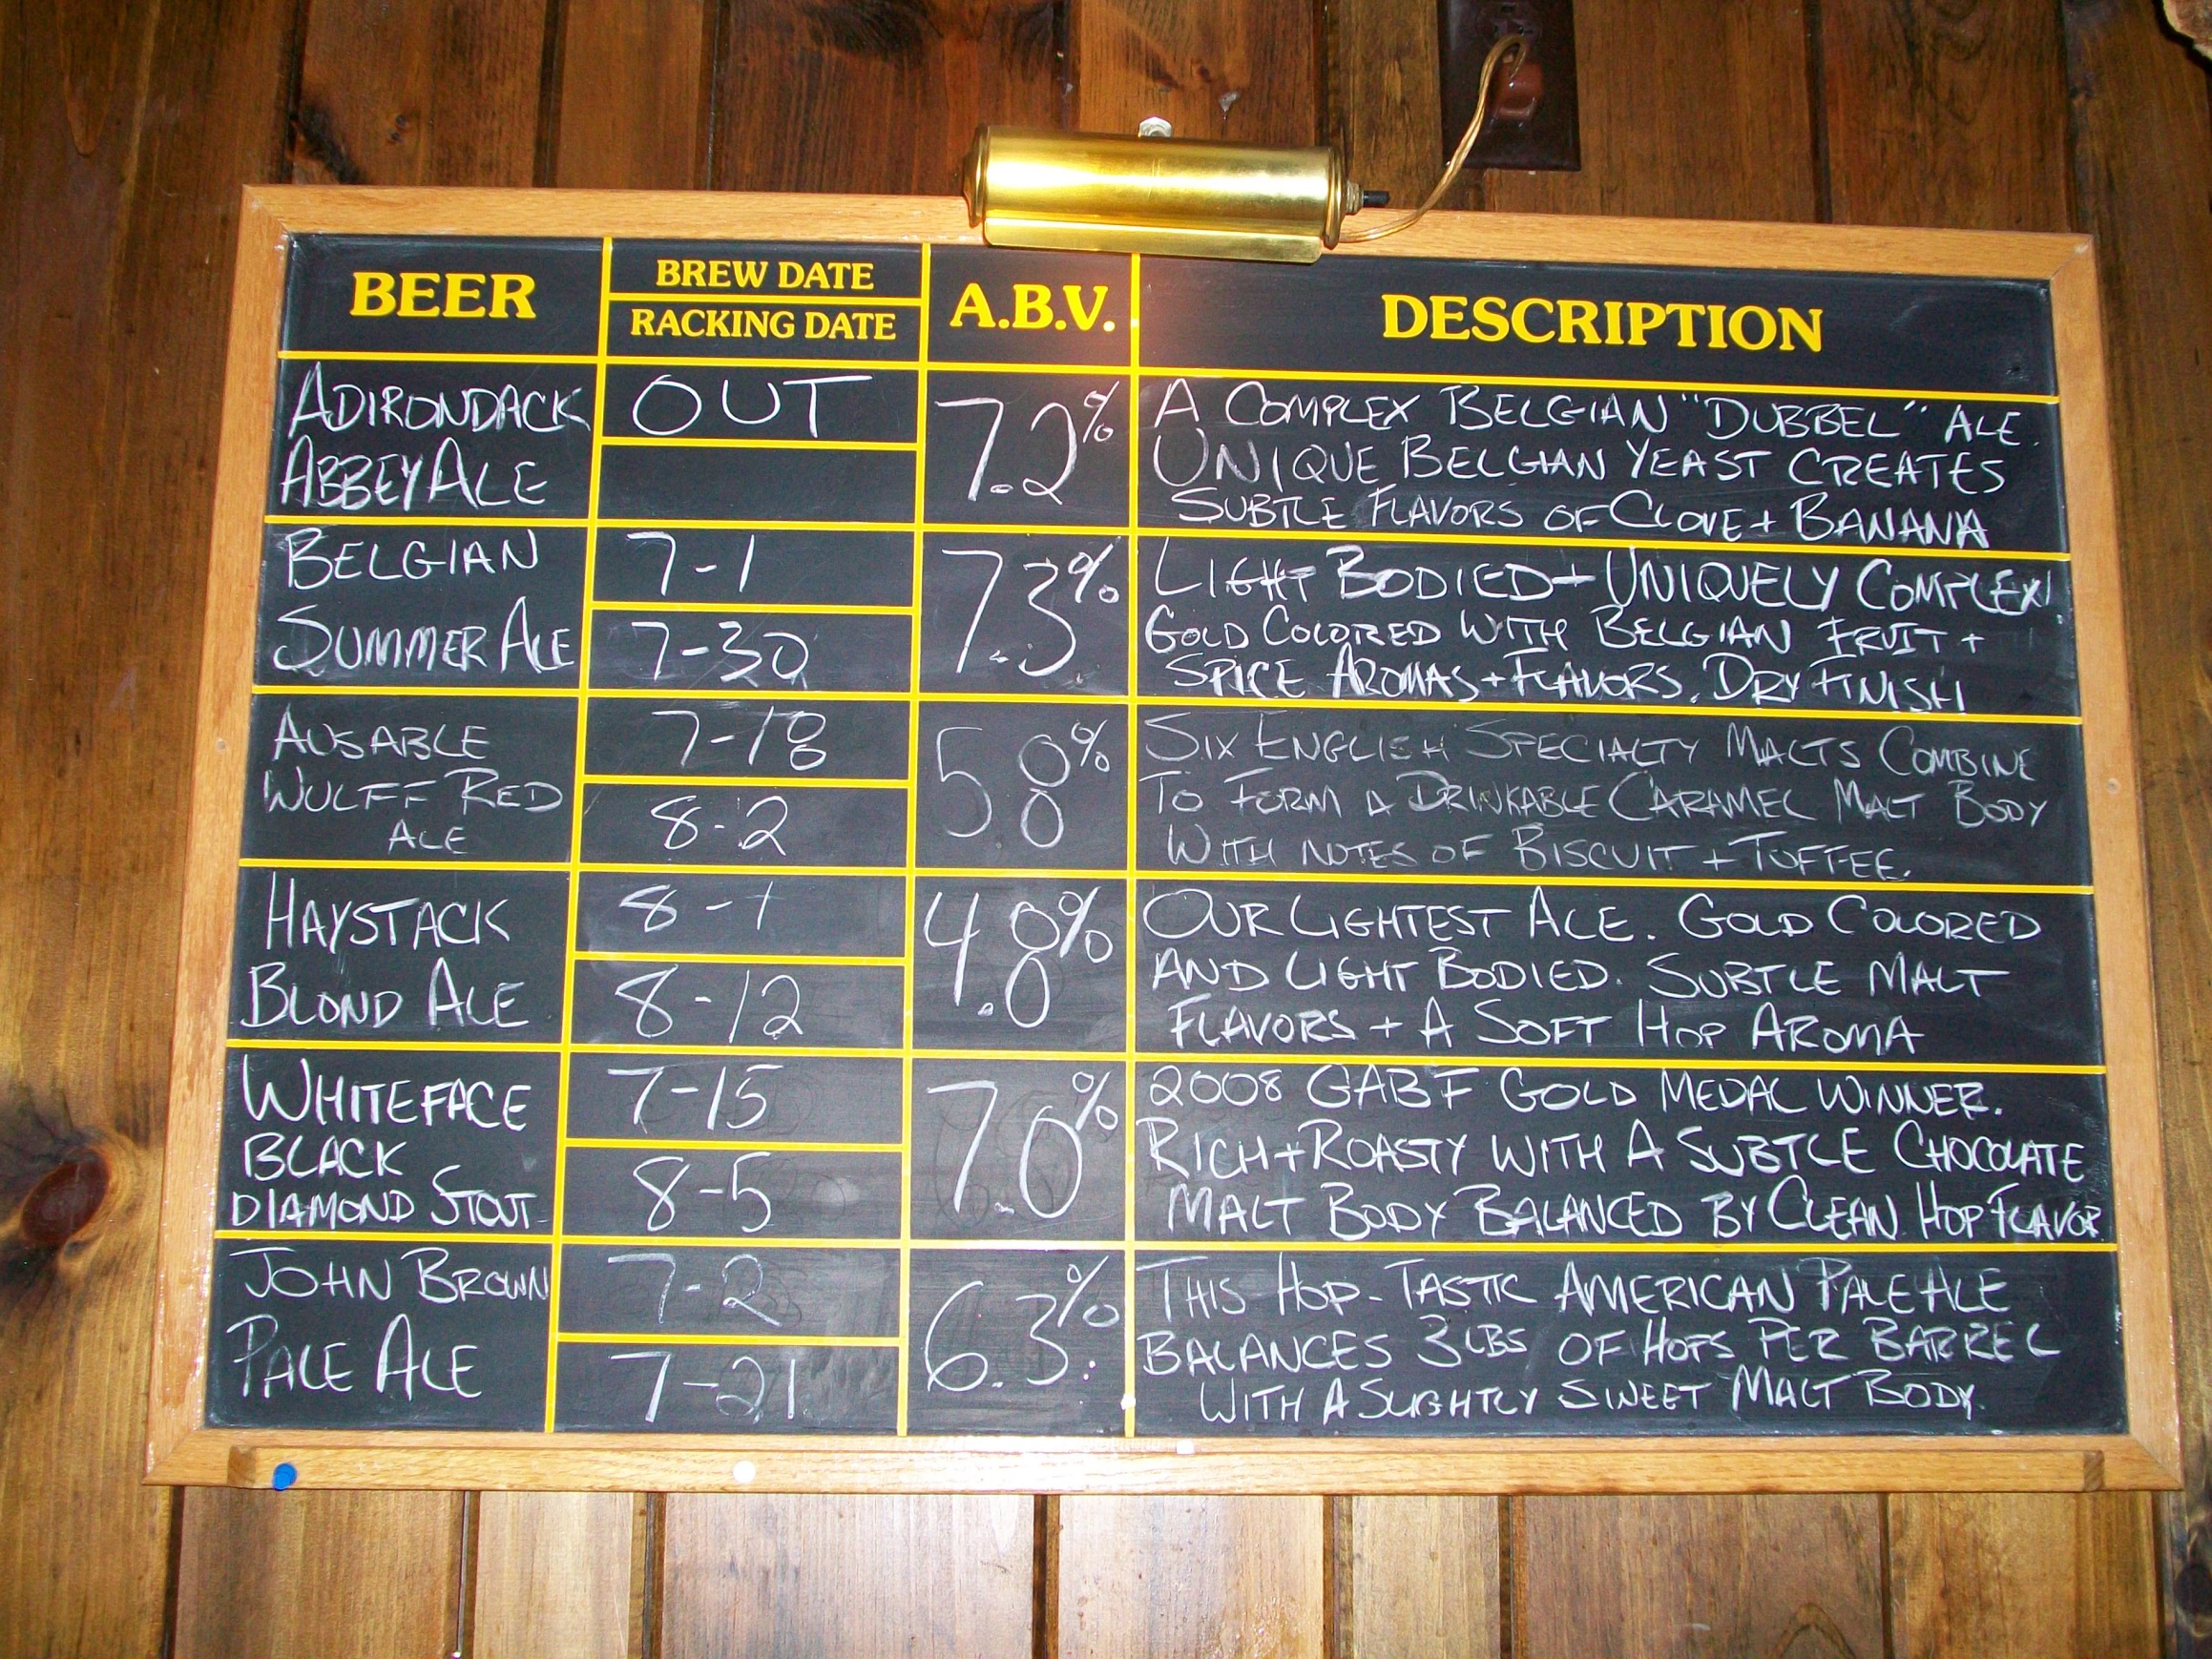 BEER
BREW DATE
RACKING DATE
A.B.V.
DESCRIPTION
ADIRONDACK
ABBEY ALE
OUT
7.2%
A COMPLEX BELGIAN "DUBBEL" ALE.
UNIQUE BELGIAN YEAST CREATES
SUBTLE FLAVORS OF CLOVE + BANANA
BELGIAN
SUMMER ALE
7-1
7-30
7.3%
LIGHT BODIED + UNIQUELY COMPLEX!
GOLD COLORED WITH BELGIAN FRUIT +
SPICE AROMAS + FLAVORS. DRY FINISH
AUSABLE
WULFF RED
ALE
7-18
8-2
5 8%
SIX ENGLISH SPECIALTY MALTS COMBINE
TO FORM A DRINKABLE CARAMEL MALT BODY
WITH NOTES OF BISCUIT + TOFFEE.
HAYSTACK
BLOND ALE
8-1
8-12
4.8%
OUR LIGHTEST ALE. GOLD COLORED
AND LIGHT BODIED. SUBTLE MALT
FLAVORS + A SOFT HOP AROMA
WHITEFACE
BLACK
DIAMOND STOUT
7-15
8-5
7.0%
2008 GABF GOLD MEDAL WINNER.
RICH + ROASTY WITH A SUBTLE CHOCOLATE
MALT BODY BALANCED BY CLEAN HOP FLAVOR
JOHN BROWN
PALE ALE
7-2
7-21
6.3%
THIS HOP-TASTIC AMERICAN PALE ALE
BALANCES 3 LBS OF HOPS PER BARREL
WITH A SLIGHTLY SWEET MALT BODY.